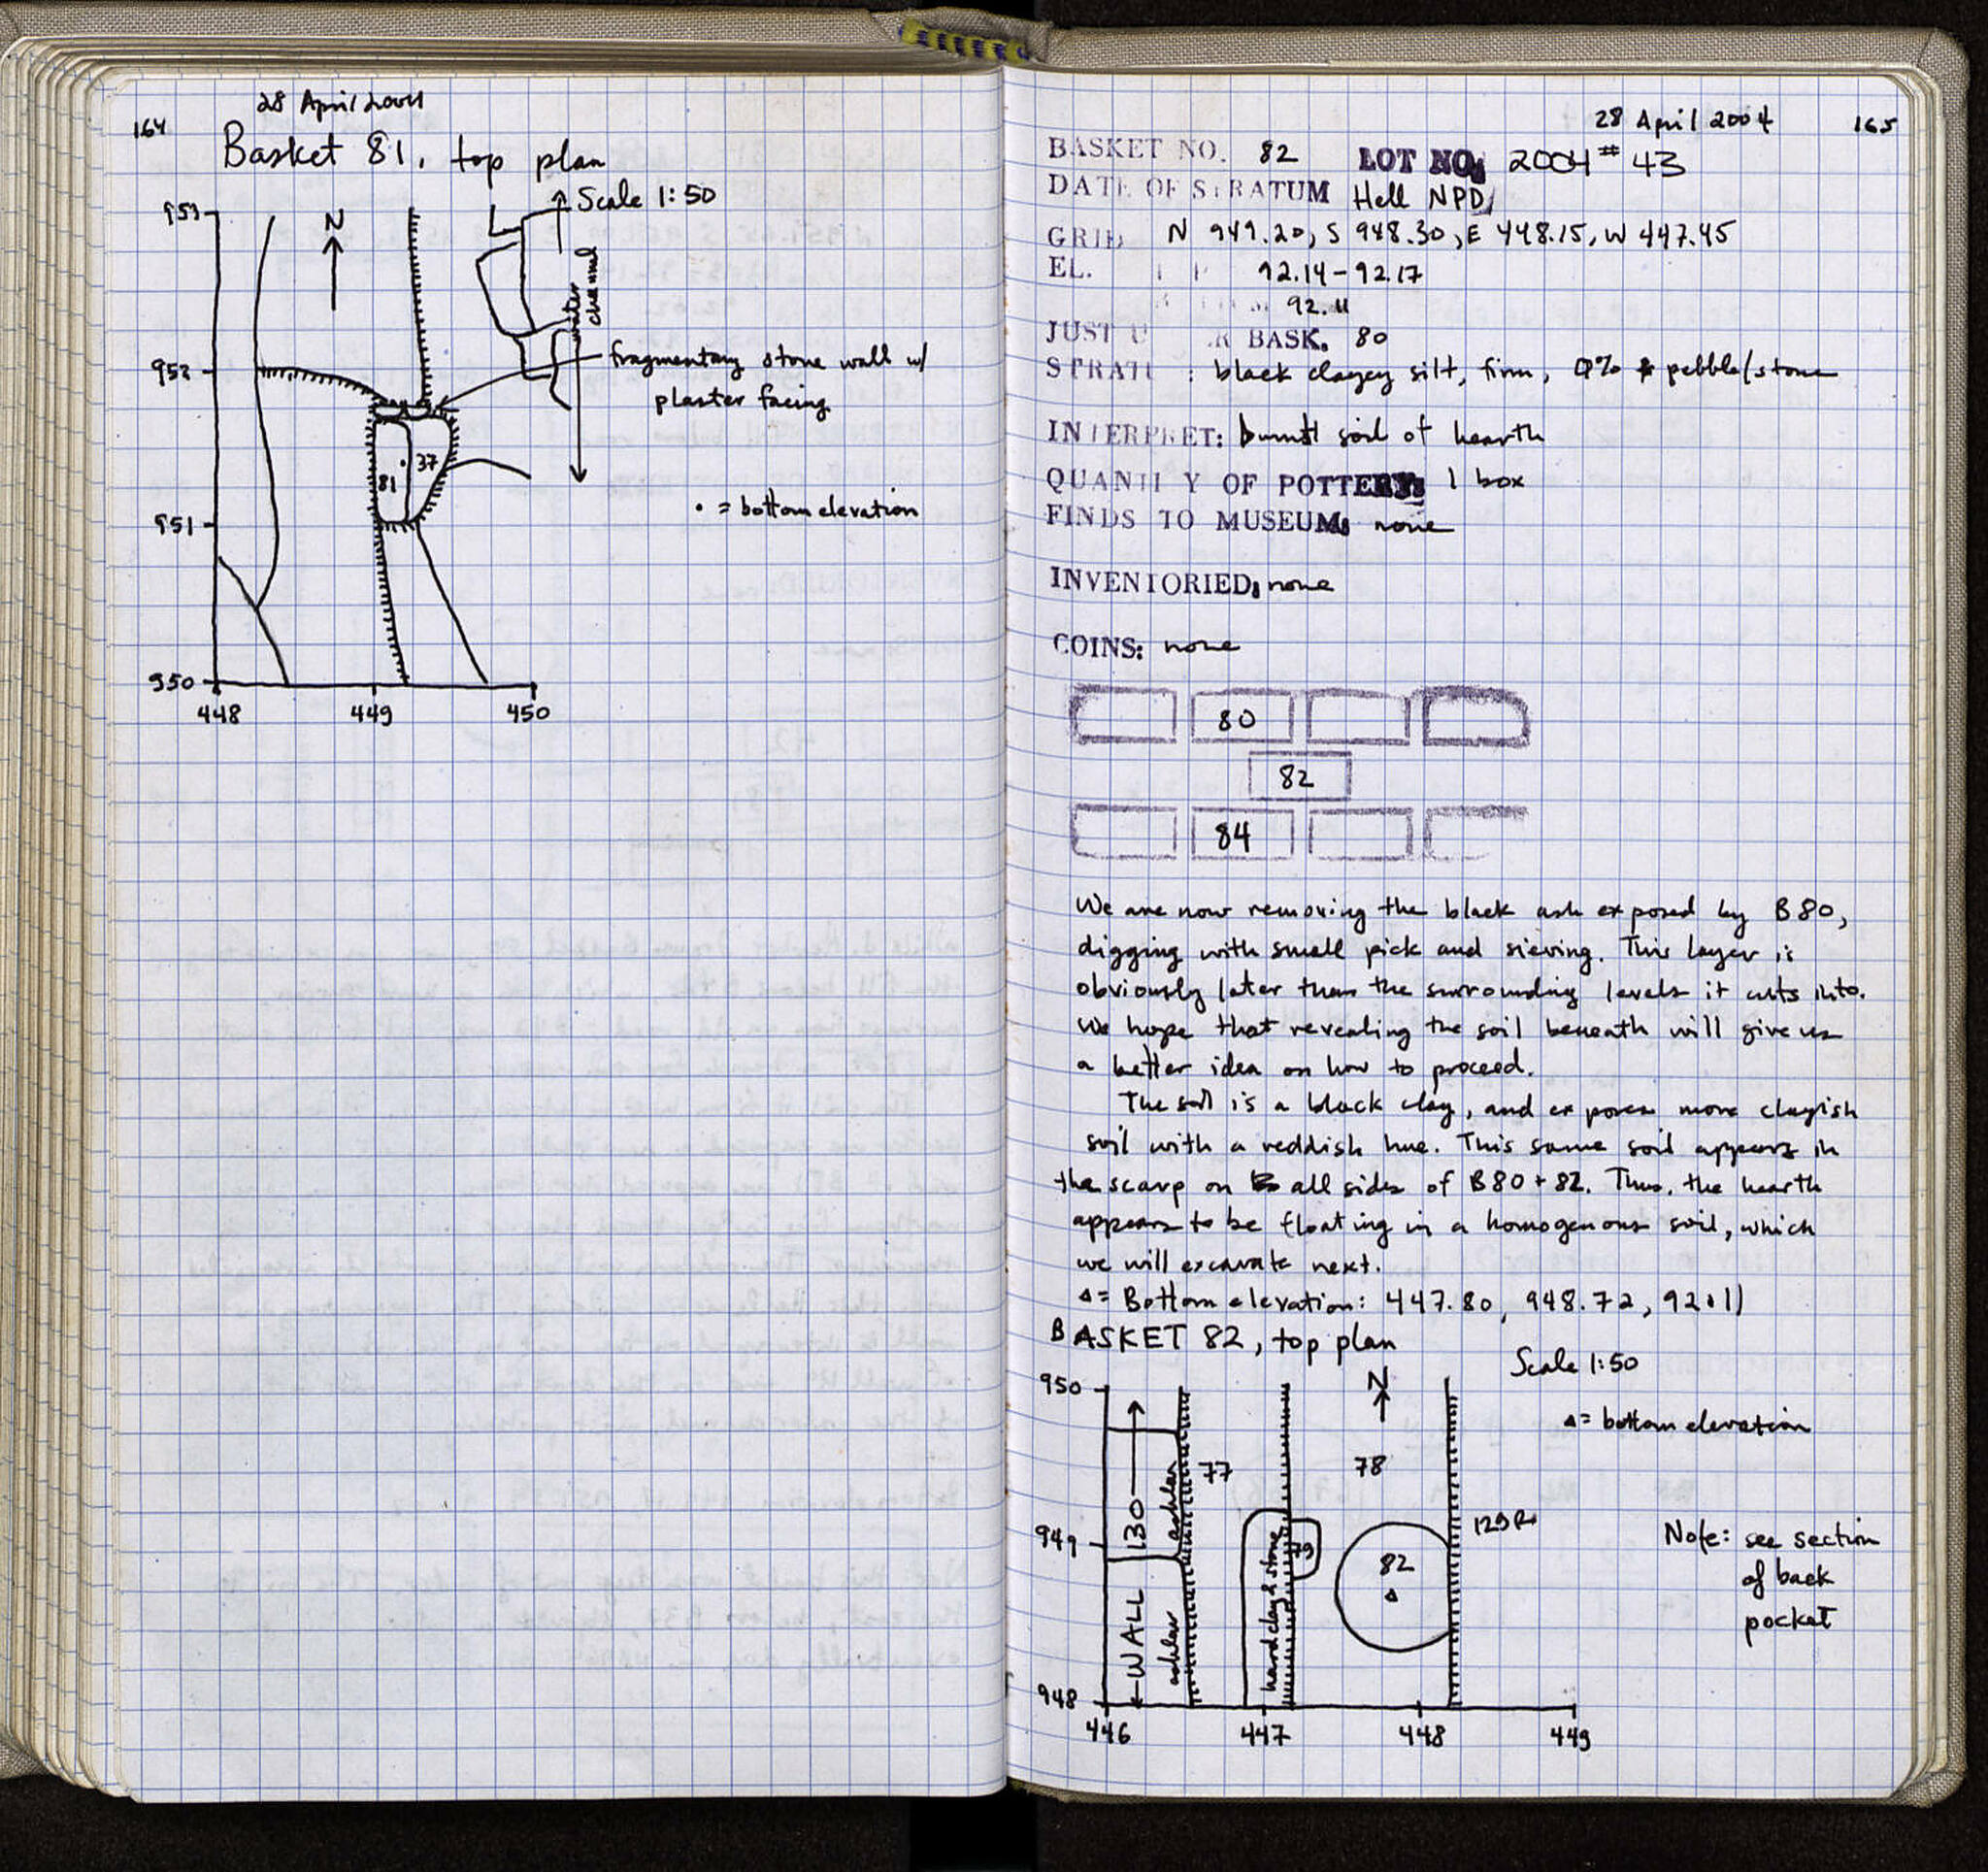 28 April 2004
164
Basket 81, top plan
Scale 1:50
953
N
water channel
952
fragmentary stone wall w/
plaster facing
37
81
951
• = bottom elevation
950
448 449 450
28 April 2004 165
BASKET NO. 82 LOT NO. 2004 # 43
DATE OF STRATUM Hell NPD
GRID N 949.20, S 948.30, E 448.15, W 447.45
EL. 92.14-92.17
92.11
JUST U R BASK. 80
STRATU : black clayey silt, firm, 0% pebble/stone
INTERPRET: burnt soil of hearth
QUANTI Y OF POTTERY: 1 box
FINDS TO MUSEUM: none
INVENTORIED: none
COINS: none
80
82
84
We are now removing the black ash exposed by B80,
digging with small pick and sieving. This layer is
obviously later than the surrounding levels it cuts into.
We hope that revealing the soil beneath will give us
a better idea on how to proceed.
The soil is a black clay, and exposes more clayish
soil with a reddish hue. This same soil appears in
the scarp on all sides of B80 + 82. Thus, the hearth
appears to be floating in a homogenous soil, which
we will excavate next.
▵= Bottom elevation: 447.80, 948.72, 92.11
BASKET 82, top plan
Scale 1:50
950
N
▵= bottom elevation
77
78
129R
949
WALL 130
ashlar
ashlar
hard clay & stone
79
82
Note: see section
of back
pocket
948
446 447 448 449